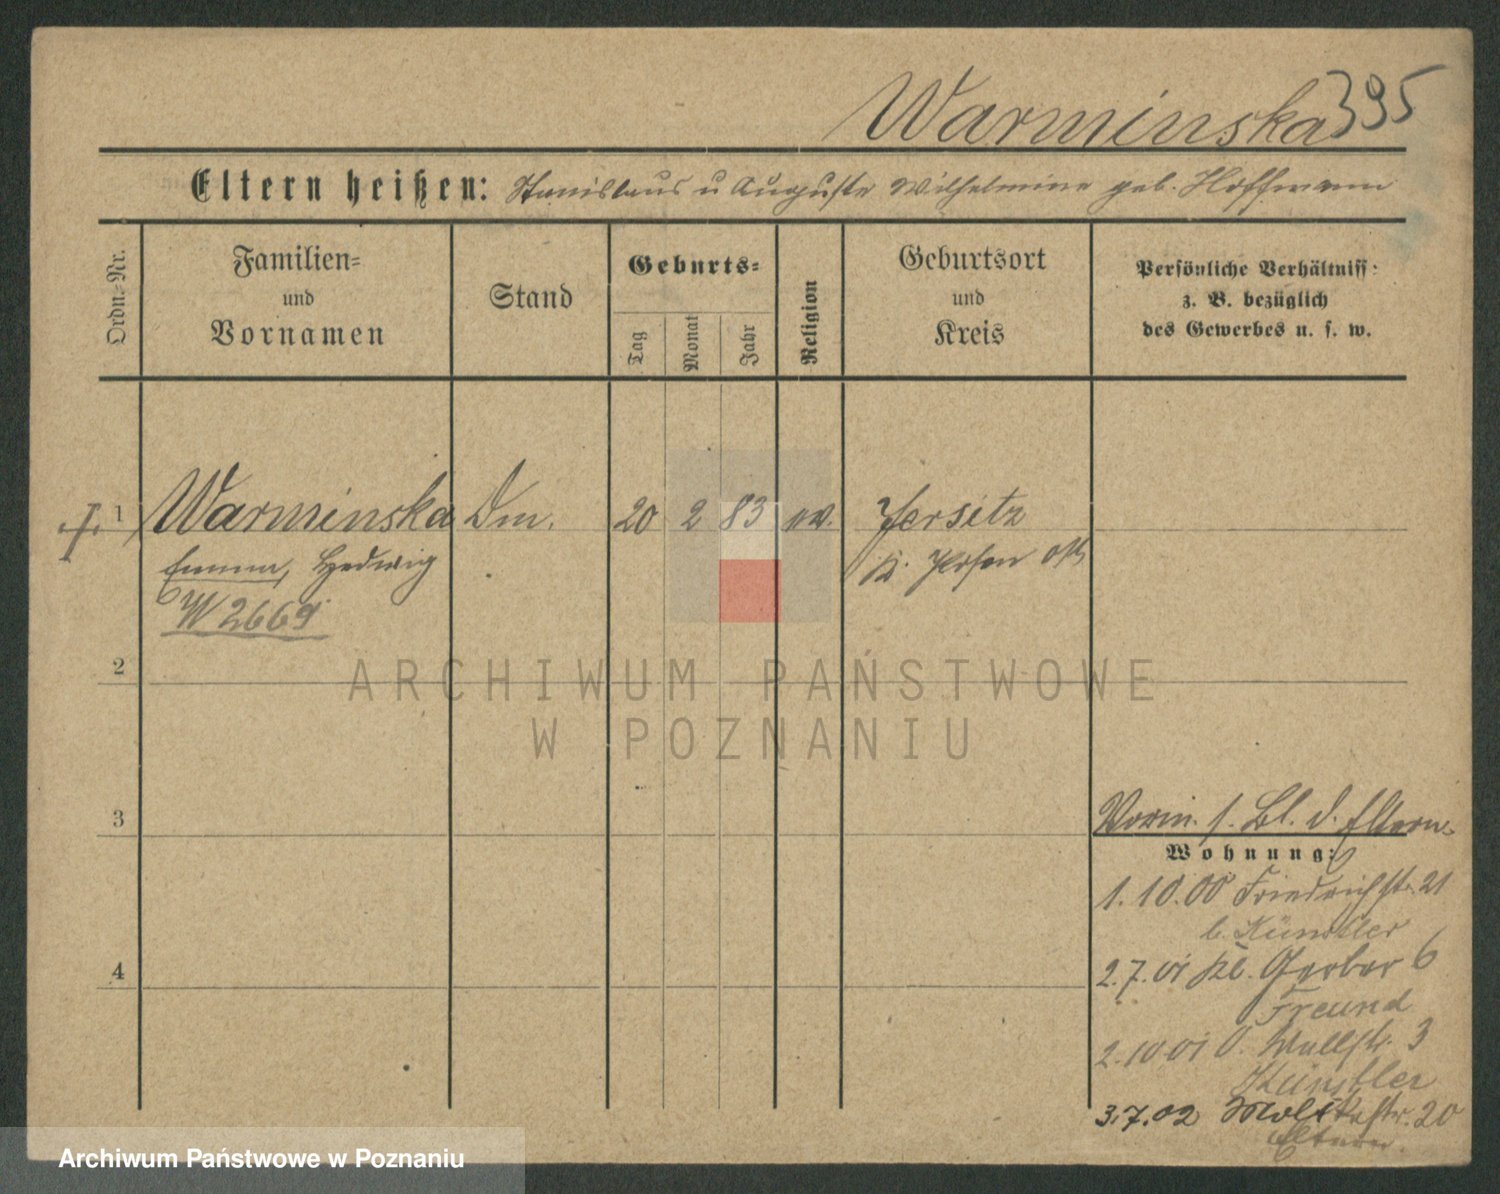 Warminska 395
Eltern heißen: Stanislaus u Auguste Wilhelmine geb. Hoffmann
Ordn.-Nr.
Familien-
und
Vornamen
Stand
Geburts-
Tag
Monat
Jahr
Religion
Geburtsort
und
Kreis
Persönliche Verhältniss:
z. B. bezüglich
des Gewerbes u. s. w.
1 Warminska Dm. 20 2 83 ev. Jersitz
Emma, Hedwig K. Posen Ost
W 2669
2
ARCHIWUM PAŃSTWOWE
W POZNANIU
3
Vorm. s. Bl. d. Eltern
Wohnung:
1.10.00 Friedrichstr. 21
b. Künstler
4
2.7.01 Kl. Gerber 6
Freund
2.10.01 O. Wallstr. 3
Künstler
3.7.02 Moltkestr. 20
Eltern.
Archiwum Państwowe w Poznaniu